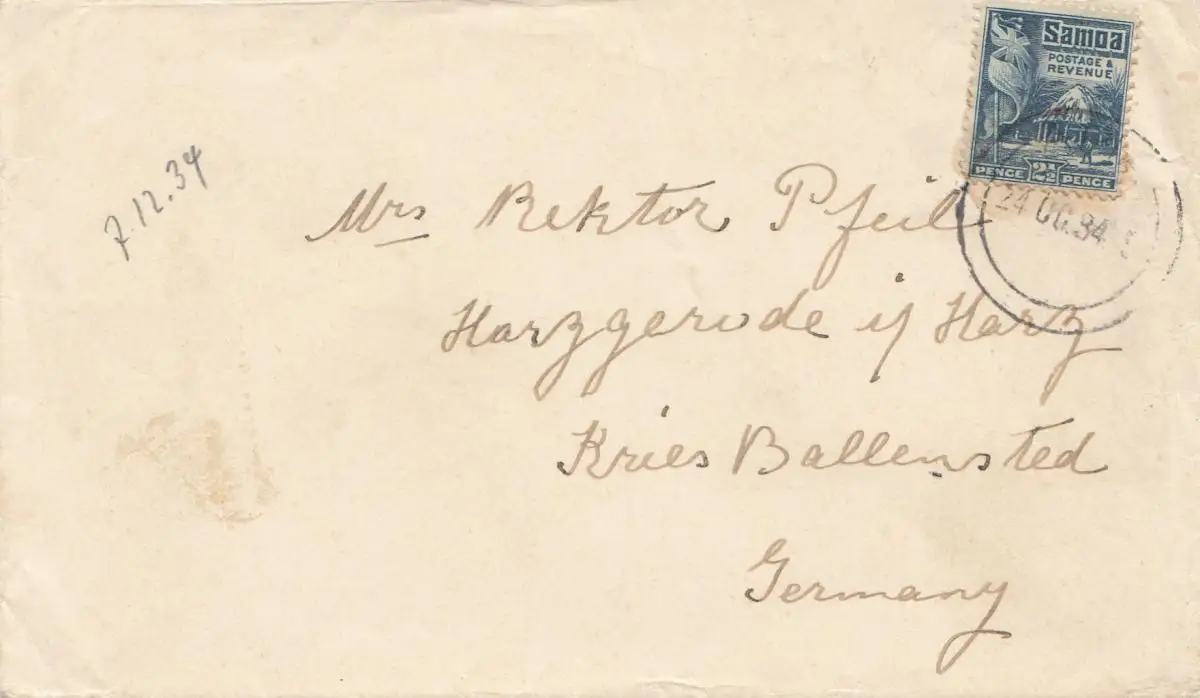 Samoa
POSTAGE &
REVENUE
PENCE 2½ PENCE
24 OC. 34
7.12.34
Mrs Rektor Pfeil
Harzgerode i/ Harz
Kries Ballensted
Germany